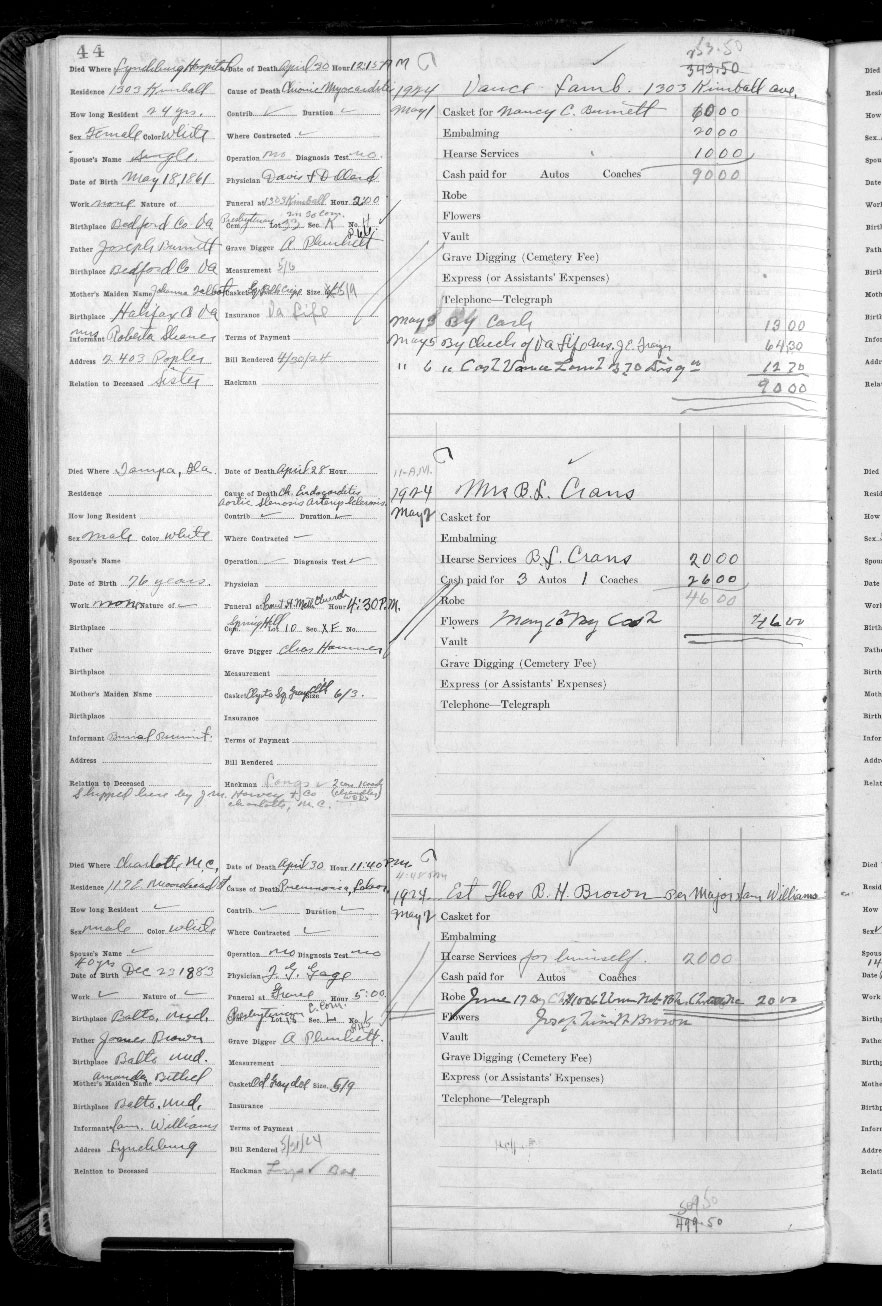 44
Died Where Lynchburg Hospital Date of Death April 30 Hour 12:15 AM
Residence 1303 Kimball Cause of Death Chronic Myocarditis
How long Resident 24 yrs. Contrib. ✓ Duration ✓
Sex Female Color White Where Contracted ✓
Spouse's Name Single. Operation no Diagnosis Test no.
Date of Birth May 18, 1861 Physician Davis & Dillard
Work none Nature of Funeral at 1303 Kimball Hour 2:00
Birthplace Bedford Co Va Presbyterian Cem. Lot 33 Sec. K No.
Father Joseph Burnett Grave Digger A Plunkett
Birthplace Bedford Co Va Measurement 5/6
Mother's Maiden Name Johanna Talbot Casket Size.
Birthplace Halifax Co Va Insurance Va Life
Informant Mrs Roberta Terms of Payment
Address 2403 Poplar Bill Rendered 4/30/24
Relation to Deceased Sister Hackman
53.50
343.50
1924 Vance Lamb. 1303 Kimball ave.
May 1 Casket for Nancy C. Burnett 60 00
Embalming 20 00
Hearse Services 10 00
Cash paid for Autos Coaches 90 00
Robe
Flowers
Vault
Grave Digging (Cemetery Fee)
Express (or Assistants' Expenses)
Telephone—Telegraph
May 3 By Cash 13 00
May 5 By Check of Va Life Ins. 64 30
" 6 " Cash Vance Lamb 12 70
90 00
Died Where Tampa, Fla. Date of Death April 28 Hour
Residence Cause of Death Ch. Endocarditis
Aortic Stenosis Arterio Sclerosis.
How long Resident Contrib ✓ Duration ✓
Sex Male Color White Where Contracted ✓
Spouse's Name Operation ✓ Diagnosis Test ✓
Date of Birth 76 years. Physician
Work none Nature of ✓ Funeral at Court St Meth Church Hour 4:30 P.M.
Birthplace Spring Hill Cem. Lot 10 Sec. No.
Father Grave Digger Chas Hammer
Birthplace Measurement
Mother's Maiden Name Casket Sq Gray Cloth Size 6/3.
Birthplace Insurance
Informant Burial Permit. Terms of Payment
Address Bill Rendered
Relation to Deceased Hackman
Shipped here by J.M. Harvey & Co
Charlotte, N.C.
11-A.M.
1924 Mrs B. L. Crans
May 2 Casket for
Embalming
Hearse Services B. L. Crans 20 00
Cash paid for 3 Autos 1 Coaches 26 00
Robe 46 00
Flowers May 10 By Cash 46 00
Vault
Grave Digging (Cemetery Fee)
Express (or Assistants' Expenses)
Telephone—Telegraph
Died Where Charlotte N.C. Date of Death April 30 Hour 11:40 P.M.
Residence 117 E. Moorehead St Cause of Death Pneumonia, Lobar
How long Resident ✓ Contrib. ✓ Duration ✓
Sex Male Color White Where Contracted ✓
Spouse's Name ✓ Operation no Diagnosis Test no
40 yrs
Date of Birth Dec 23 1883 Physician J. G. Gage
Work ✓ Nature of ✓ Funeral at Grave Hour 5:00
Birthplace Balto. Md. Presbyterian Cem. Lot Sec. No.
Father James Brown Grave Digger A Plunkett.
Birthplace Balto Md. Measurement
Mother's Maiden Name Amanda Bethel Casket Size. 5/9
Birthplace Balto. Md. Insurance
Informant Jam. Williams Terms of Payment
Address Lynchburg Bill Rendered 5/21/24
Relation to Deceased Hackman
1924 Est Thos R. H. Brown Per Major Jam Williams
May 2 Casket for
Embalming
Hearse Services for himself. 20 00
Cash paid for Autos Coaches
Robe June 17 By 20 00
Flowers Brown
Vault
Grave Digging (Cemetery Fee)
Express (or Assistants' Expenses)
Telephone—Telegraph
509.50
499.50